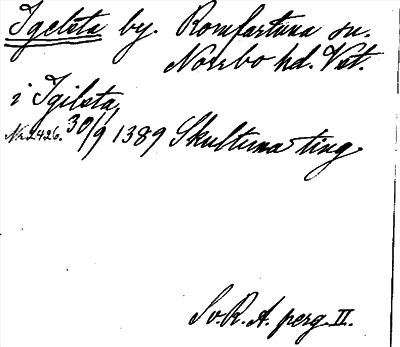 Igelsta by. Romfartuna sn.
Norrbo hd. Vst.
i Igilsta
Nr 2426. 30/9 1389 Skultuna ting
Sv. R. A. perg. II.